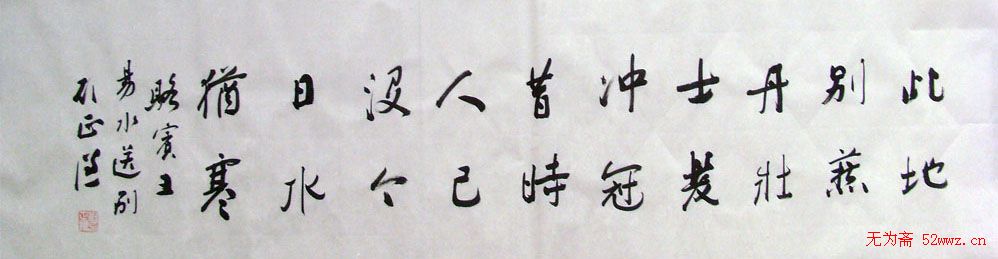 此地
别燕
丹壮
士髮
冲冠
昔時
人已
没今
日水
猶寒
骆賓王
易水送别
正
无为斋 52wwz.cn